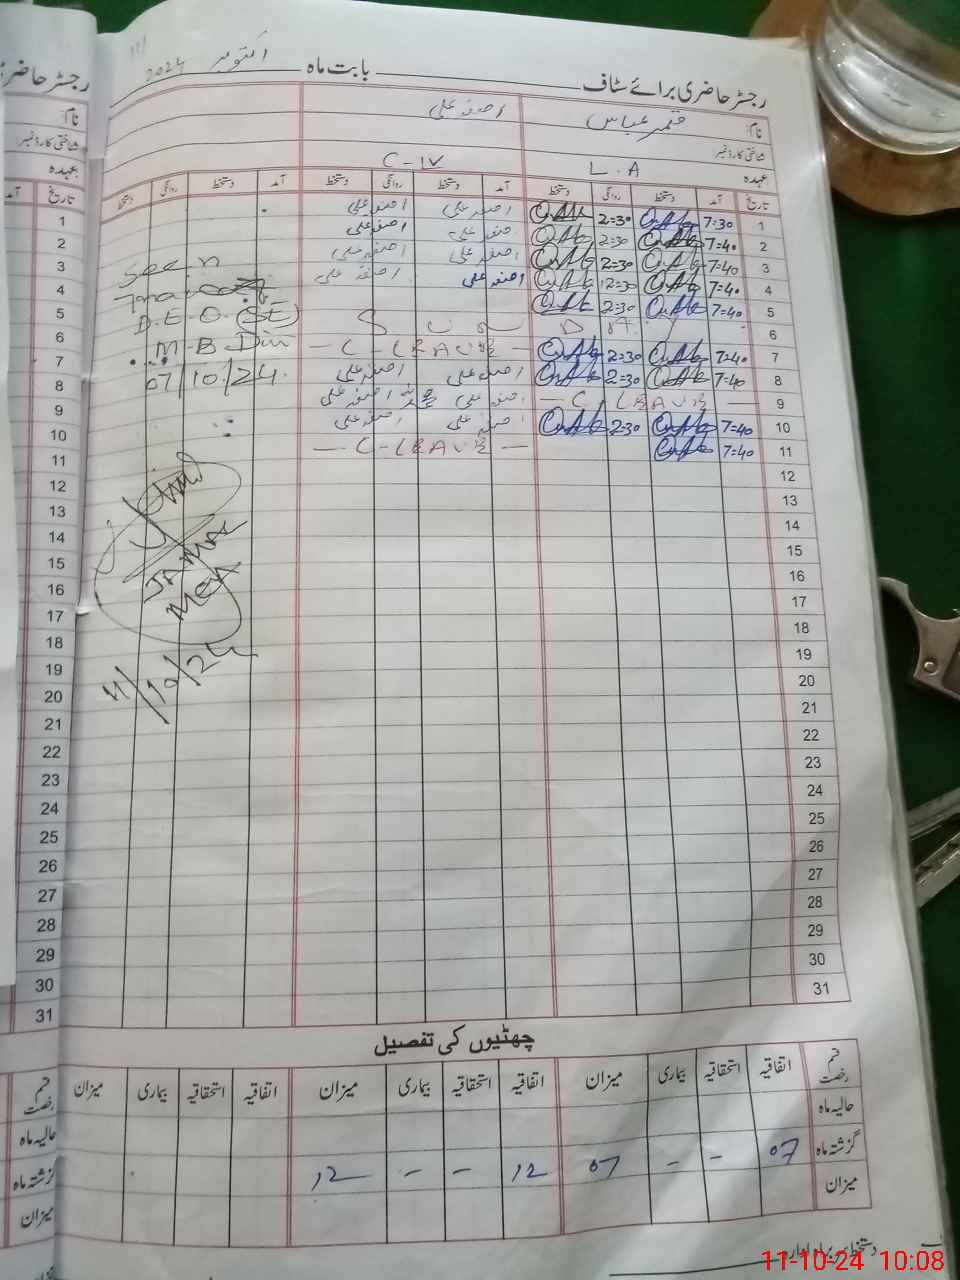 رجسٹر حاضری برائے سٹاف بابت ماہ اکتوبر 2024
نام: قمبر عباس اصغر علی
شناختی کارڈ نمبر
عہدہ L.A C-IV
تاریخ آمد دستخط روانگی دستخط آمد دستخط روانگی دستخط آمد دستخط روانگی دستخط
1 7=30 2=30 اصغر علی اصغر علی
2 7=40 2=30 اصغر علی اصغر علی
3 7=40 2=30 اصغر علی اصغر علی
4 7=40 12=30 اصغر علی اصغر علی
5 7=40 2=30
6 S U N D A Y
7 7=40 2=30 — C-LEAVE —
8 7=40 2=30 اصغر علی اصغر علی
9 — C LEAVE — اصغر علی اصغر علی
10 7=40 2=30 اصغر علی اصغر علی
11 7=40 — C-LEAVE —
12
13
14
15
16
17
18
19
20
21
22
23
24
25
26
27
28
29
30
31
Seen
D.E.O (SE)
M-B-Din
07/10/24.
JAMA
MEA
11/10/24
چھٹیوں کی تفصیل
قسم رخصت اتفاقیہ استحقاقیہ بیماری میزان اتفاقیہ استحقاقیہ بیماری میزان اتفاقیہ استحقاقیہ بیماری میزان
حالیہ ماہ
گزشتہ ماہ 07 - - 07 12 - - 12
میزان
دستخط سربراہ ادارہ
رجسٹر حاضری
نام:
شناختی کارڈ نمبر
عہدہ
تاریخ آمد
1
2
3
4
5
6
7
8
9
10
11
12
13
14
15
16
17
18
19
20
21
22
23
24
25
26
27
28
29
30
31
قسم رخصت
حالیہ ماہ
گزشتہ ماہ
میزان
11-10-24 10:08